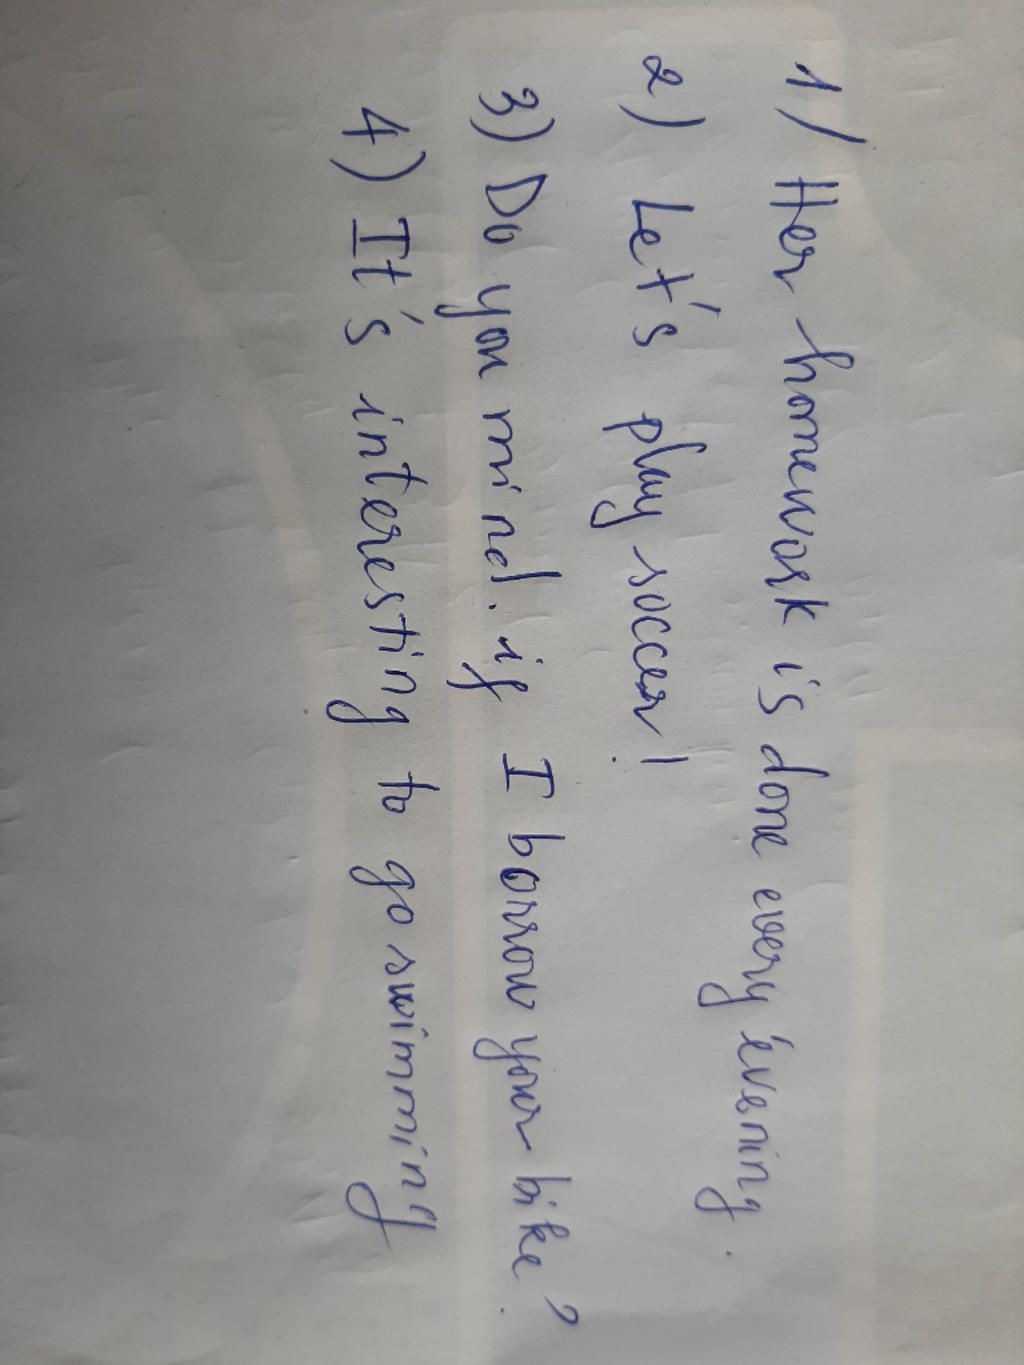 1) Her homework is done every evening.
2) Let's play soccer!
3) Do you mind. if I borrow your bike?
4) It's interesting to go swimming